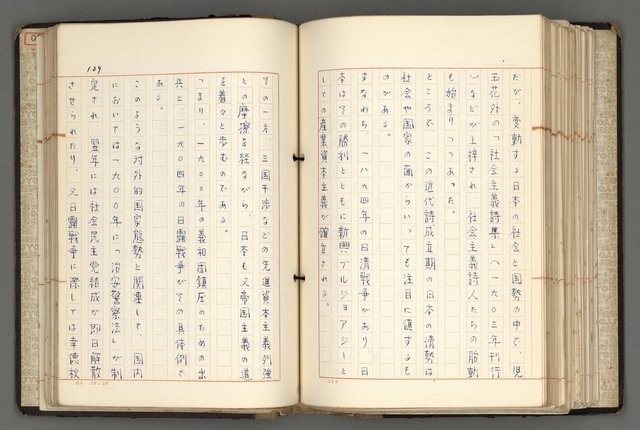 だが、変動する日本の社会と国勢の中で、児
玉花外の「社会主義詩集」（一九〇三年刊行
）などが上梓され、社会主義詩人たちの胎動
も始まりつつあった。
ところで、この近代詩成立期の日本の情勢は、
社会や国家の面からいっても注目に値するも
のがある。
すなわち、一八八四年の日清戦争があり、日
本はての勝利とともに新興ブルジョアジーと
しての産業資本主義が確立される。
139
ての一方、三国干渉などの先進資本主義列強
との摩擦を経ながら、日本も又帝国主義の道
を着々と歩むのである。
つまり、一九〇〇年の義和団鎮圧のための出
兵と、一九〇四年の日露戦争がての具体例で
ある。
このような対外的国家態勢と関連して、国内
においては一九〇〇年に「治安警察法」が制
定され、翌年には社会民主党結成が即日解散
させられたり、又日露戦争に際しては幸徳秋